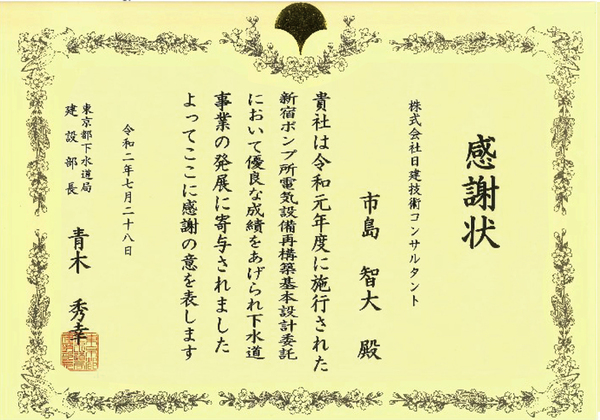 感謝状
株式会社日建技術コンサルタント
市島 智大 殿
貴社は令和元年度に施行された
新宿ポンプ所電気設備再構築基本設計委託
において優良な成績をあげられ下水道
事業の発展に寄与されました
よってここに感謝の意を表します
令和二年七月二十八日
東京都下水道局
建設部長 青木 秀幸